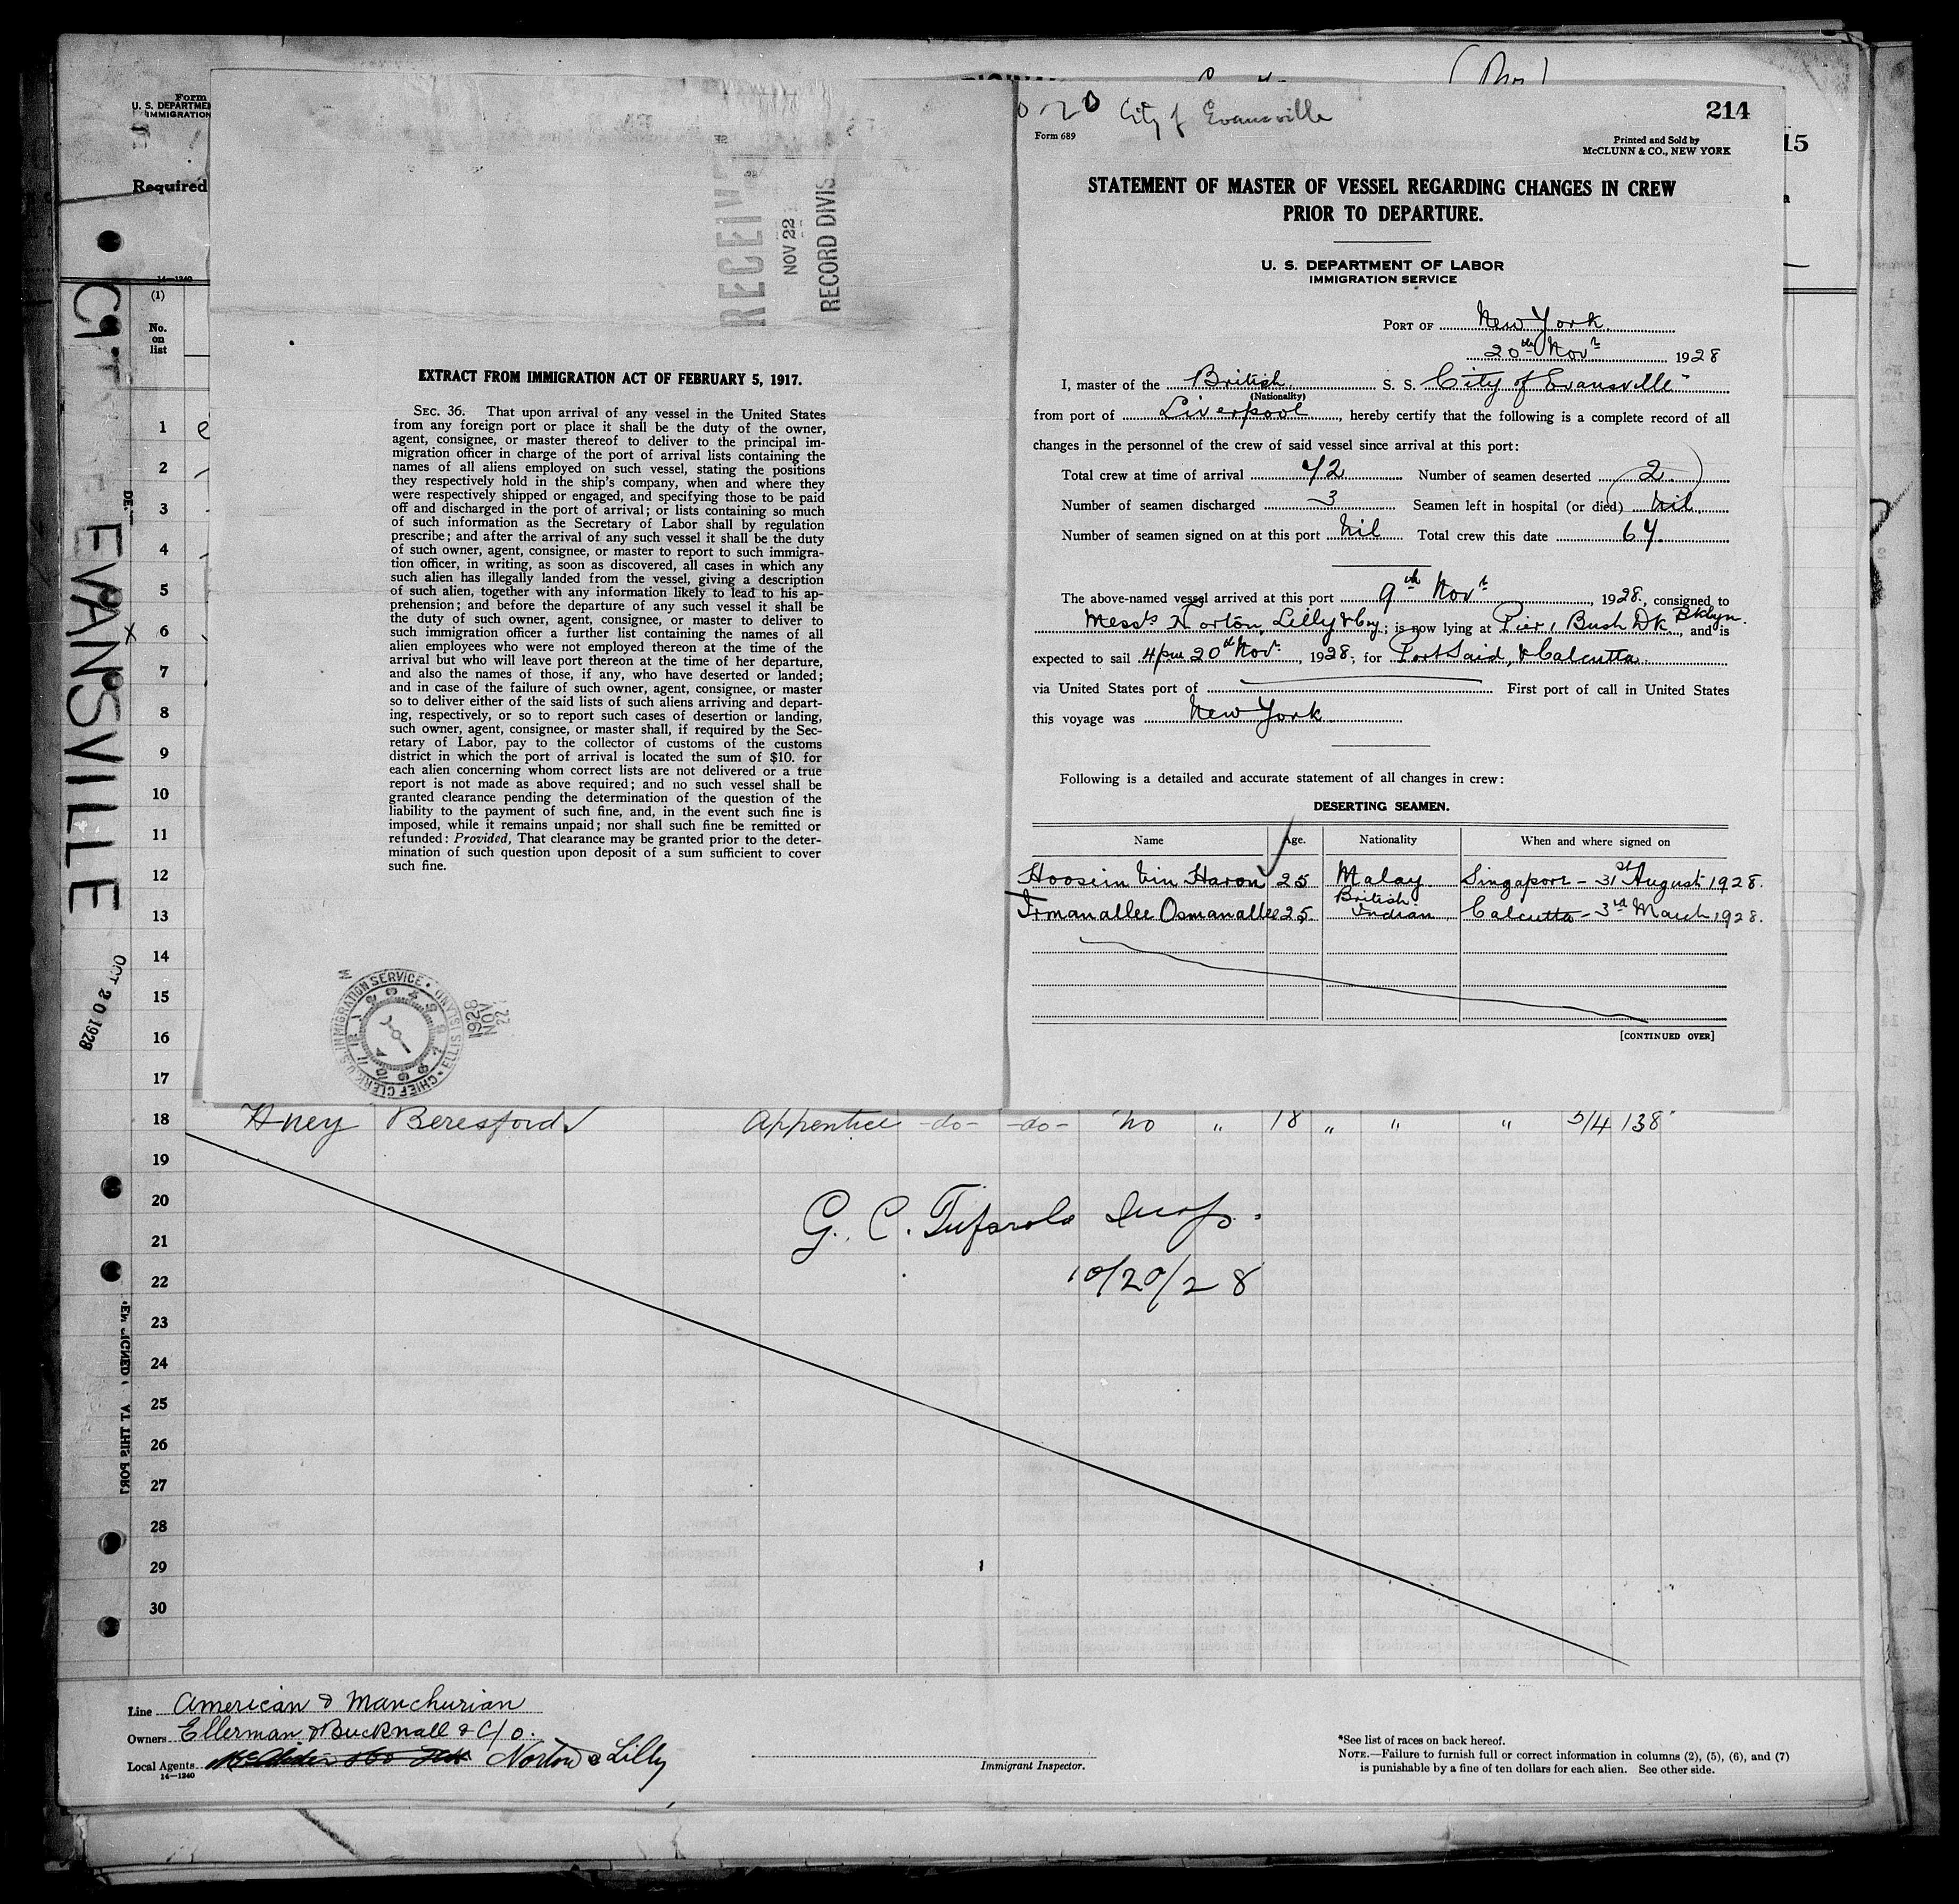 Form
U. S. DEPARTME
IMMIGRATION
Required
14—1240
(1)
No.
on
list
CITY EVANSVILLE
OCT 20 1928
RECEIV
NOV 22
RECORD DIVIS
EXTRACT FROM IMMIGRATION ACT OF FEBRUARY 5, 1917.
SEC. 36. That upon arrival of any vessel in the United States
from any foreign port or place it shall be the duty of the owner,
agent, consignee, or master thereof to deliver to the principal im-
migration officer in charge of the port of arrival lists containing the
names of all aliens employed on such vessel, stating the positions
they respectively hold in the ship's company, when and where they
were respectively shipped or engaged, and specifying those to be paid
off and discharged in the port of arrival; or lists containing so much
of such information as the Secretary of Labor shall by regulation
prescribe; and after the arrival of any such vessel it shall be the duty
of such owner, agent, consignee, or master to report to such immigra-
tion officer, in writing, as soon as discovered, all cases in which any
such alien has illegally landed from the vessel, giving a description
of such alien, together with any information likely to lead to his ap-
prehension; and before the departure of any such vessel it shall be
the duty of such owner, agent, consignee, or master to deliver to
such immigration officer a further list containing the names of all
alien employees who were not employed thereon at the time of the
arrival but who will leave port thereon at the time of her departure,
and also the names of those, if any, who have deserted or landed;
and in case of the failure of such owner, agent, consignee, or master
so to deliver either of the said lists of such aliens arriving and depart-
ing, respectively, or so to report such cases of desertion or landing,
such owner, agent, consignee, or master shall, if required by the Sec-
retary of Labor, pay to the collector of customs of the customs
district in which the port of arrival is located the sum of $10. for
each alien concerning whom correct lists are not delivered or a true
report is not made as above required; and no such vessel shall be
granted clearance pending the determination of the question of the
liability to the payment of such fine, and, in the event such fine is
imposed, while it remains unpaid; nor shall such fine be remitted or
refunded: Provided, That clearance may be granted prior to the deter-
mination of such question upon deposit of a sum sufficient to cover
such fine.
U.S. IMMIGRATION SERVICE • ELLIS ISLAND • CHIEF CLERK
1928
NOV
22
City of Evansville
214
15
Form 689
Printed and Sold by
McCLUNN & CO., NEW YORK
STATEMENT OF MASTER OF VESSEL REGARDING CHANGES IN CREW
PRIOR TO DEPARTURE.
U. S. DEPARTMENT OF LABOR
IMMIGRATION SERVICE
PORT OF New York
20th Novr 1928
I, master of the British S. S. City of Evansville
(Nationality)
from port of Liverpool, hereby certify that the following is a complete record of all
changes in the personnel of the crew of said vessel since arrival at this port:
Total crew at time of arrival 72 Number of seamen deserted 2
Number of seamen discharged 3 Seamen left in hospital (or died) Nil
Number of seamen signed on at this port Nil Total crew this date 67
The above-named vessel arrived at this port 9th Novr, 1928, consigned to
Messrs Norton, Lilly & Coy; is now lying at Pier 1 Bush Dk Bklyn., and is
expected to sail 4pm 20th Novr, 1928, for Port Said, & Calcutta
via United States port of First port of call in United States
this voyage was New York
Following is a detailed and accurate statement of all changes in crew:
DESERTING SEAMEN.
Name Age. Nationality When and where signed on
Hoosein bin Haron 25 Malay Singapore - 31st August 1928.
Irmanallee Osmanallee 25 British Indian Calcutta - 3rd March 1928.
[CONTINUED OVER]
1
2
3
4
5
x 6
7
8
9
10
11
12
13
14
15
16
17
18 Hney Beresford Apprentice -do- -do- No " 18 " " " 5/4 138
19
20
21
22
23
24
25
26
27
28
29
30
G. C. Tufarolo Insp.
10/20/28
Line American & Manchurian
Owners Ellerman & Bucknall & C/o.
Local Agents Norton & Lilly
14—1240
Immigrant Inspector.
*See list of races on back hereof.
NOTE.—Failure to furnish full or correct information in columns (2), (5), (6), and (7)
is punishable by a fine of ten dollars for each alien. See other side.